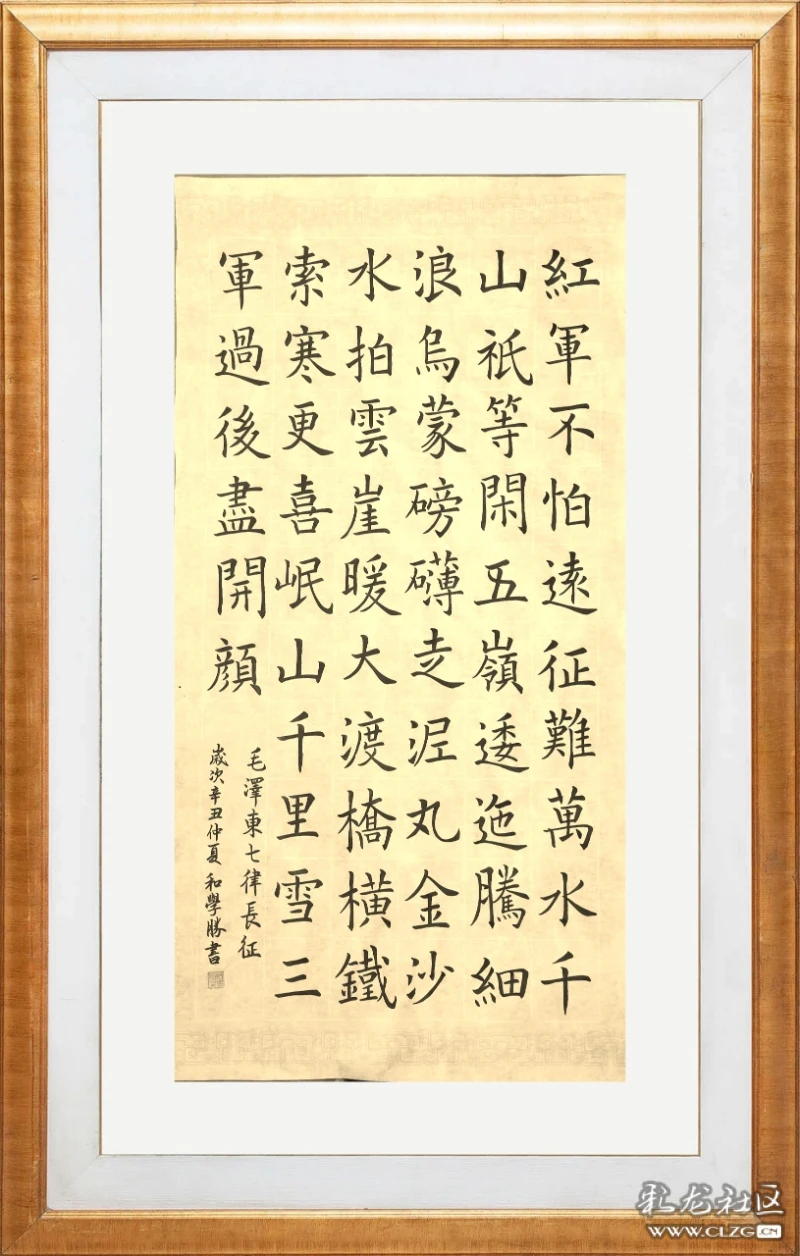 紅軍不怕遠征難萬水千
山祇等閑五嶺逶迤騰細
浪烏蒙磅礴走泥丸金沙
水拍雲崖暖大渡橋橫鐵
索寒更喜岷山千里雪三
軍過後盡開顔
毛澤東七律長征
歲次辛丑仲夏和學勝書
彩龙社区
WWW.CLZG.CN